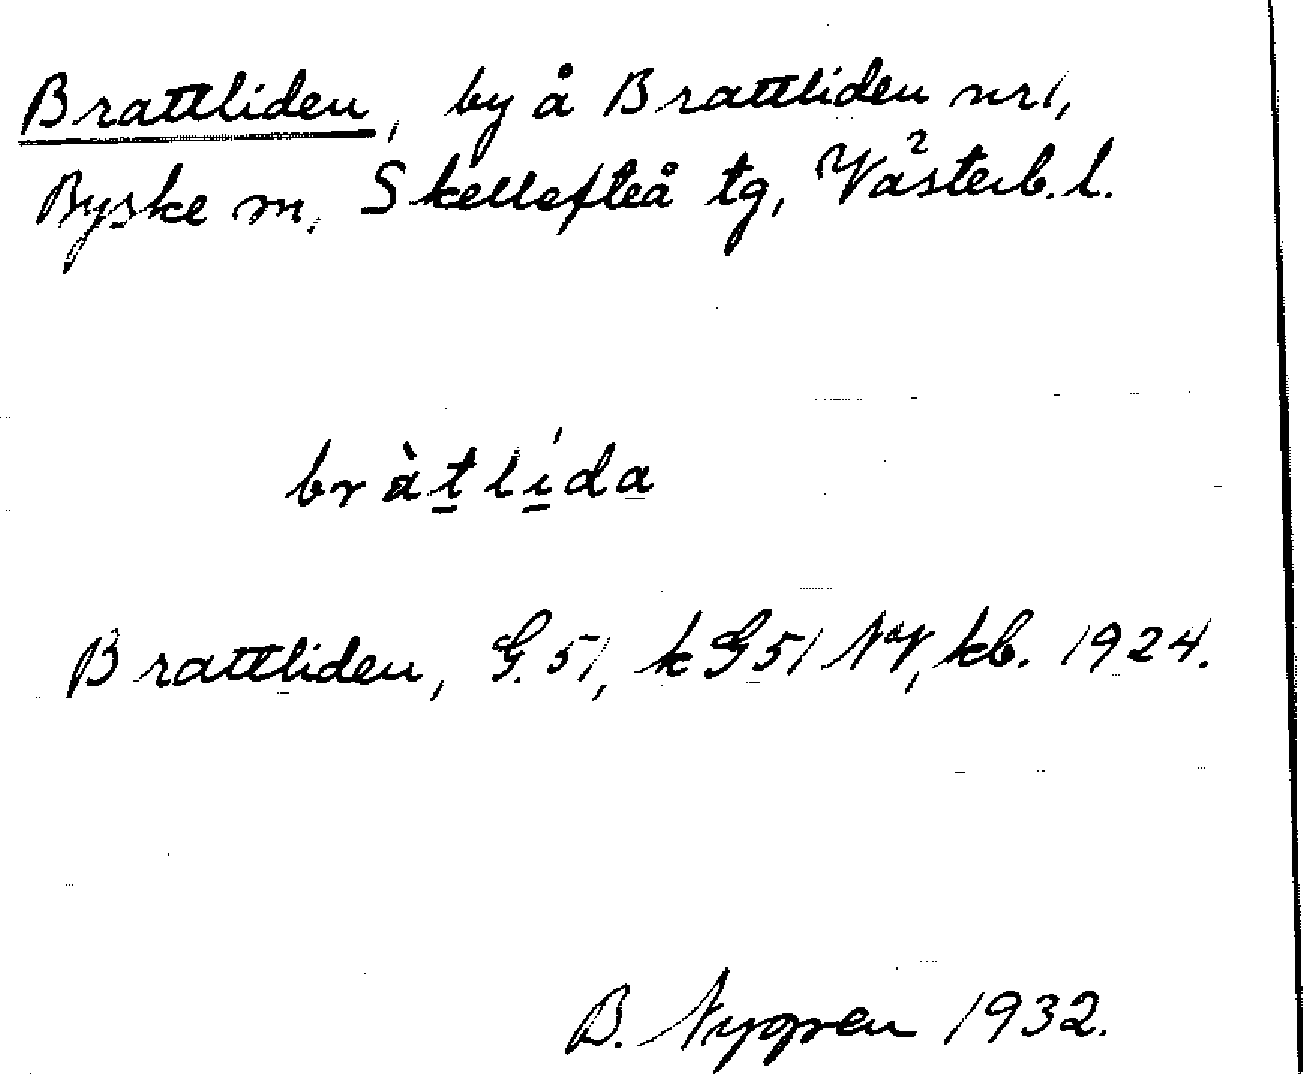 Brattliden, by å Brattliden nr 1,
Byske sn, Skellefteå tg, Västerb. l.
bràt̠lí̠da
Brattliden, G. 51, k G 51 NV, kb. 1924.
B. Nygren 1932.